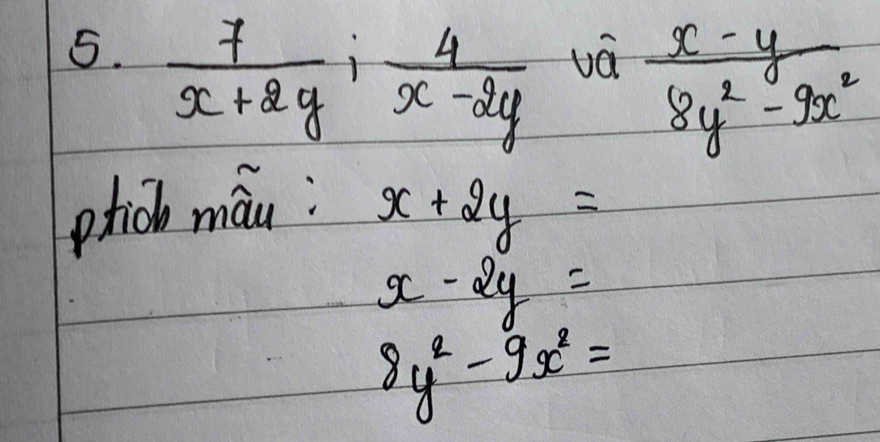 5. \frac{7}{x+2y} ; \frac{4}{x-2y} và \frac{x-y}{8y^2-9x^2}
ptích mẫu : x + 2y =
x - 2y =
8y^2 - 9x^2 =